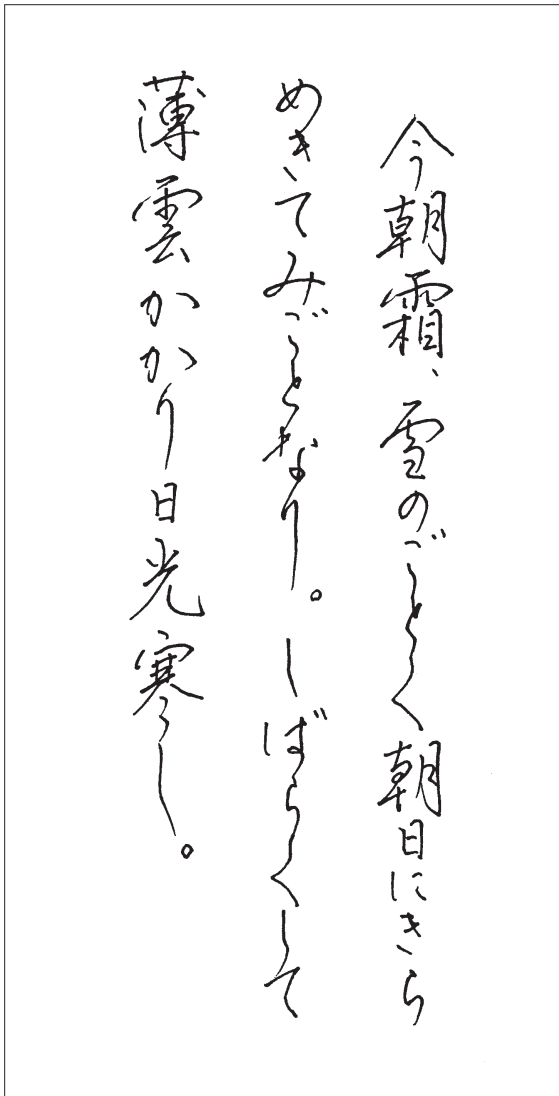 今朝霜、雪のごとく朝日にきら
めきてみごとなり。しばらくして
薄雲かかり日光寒し。